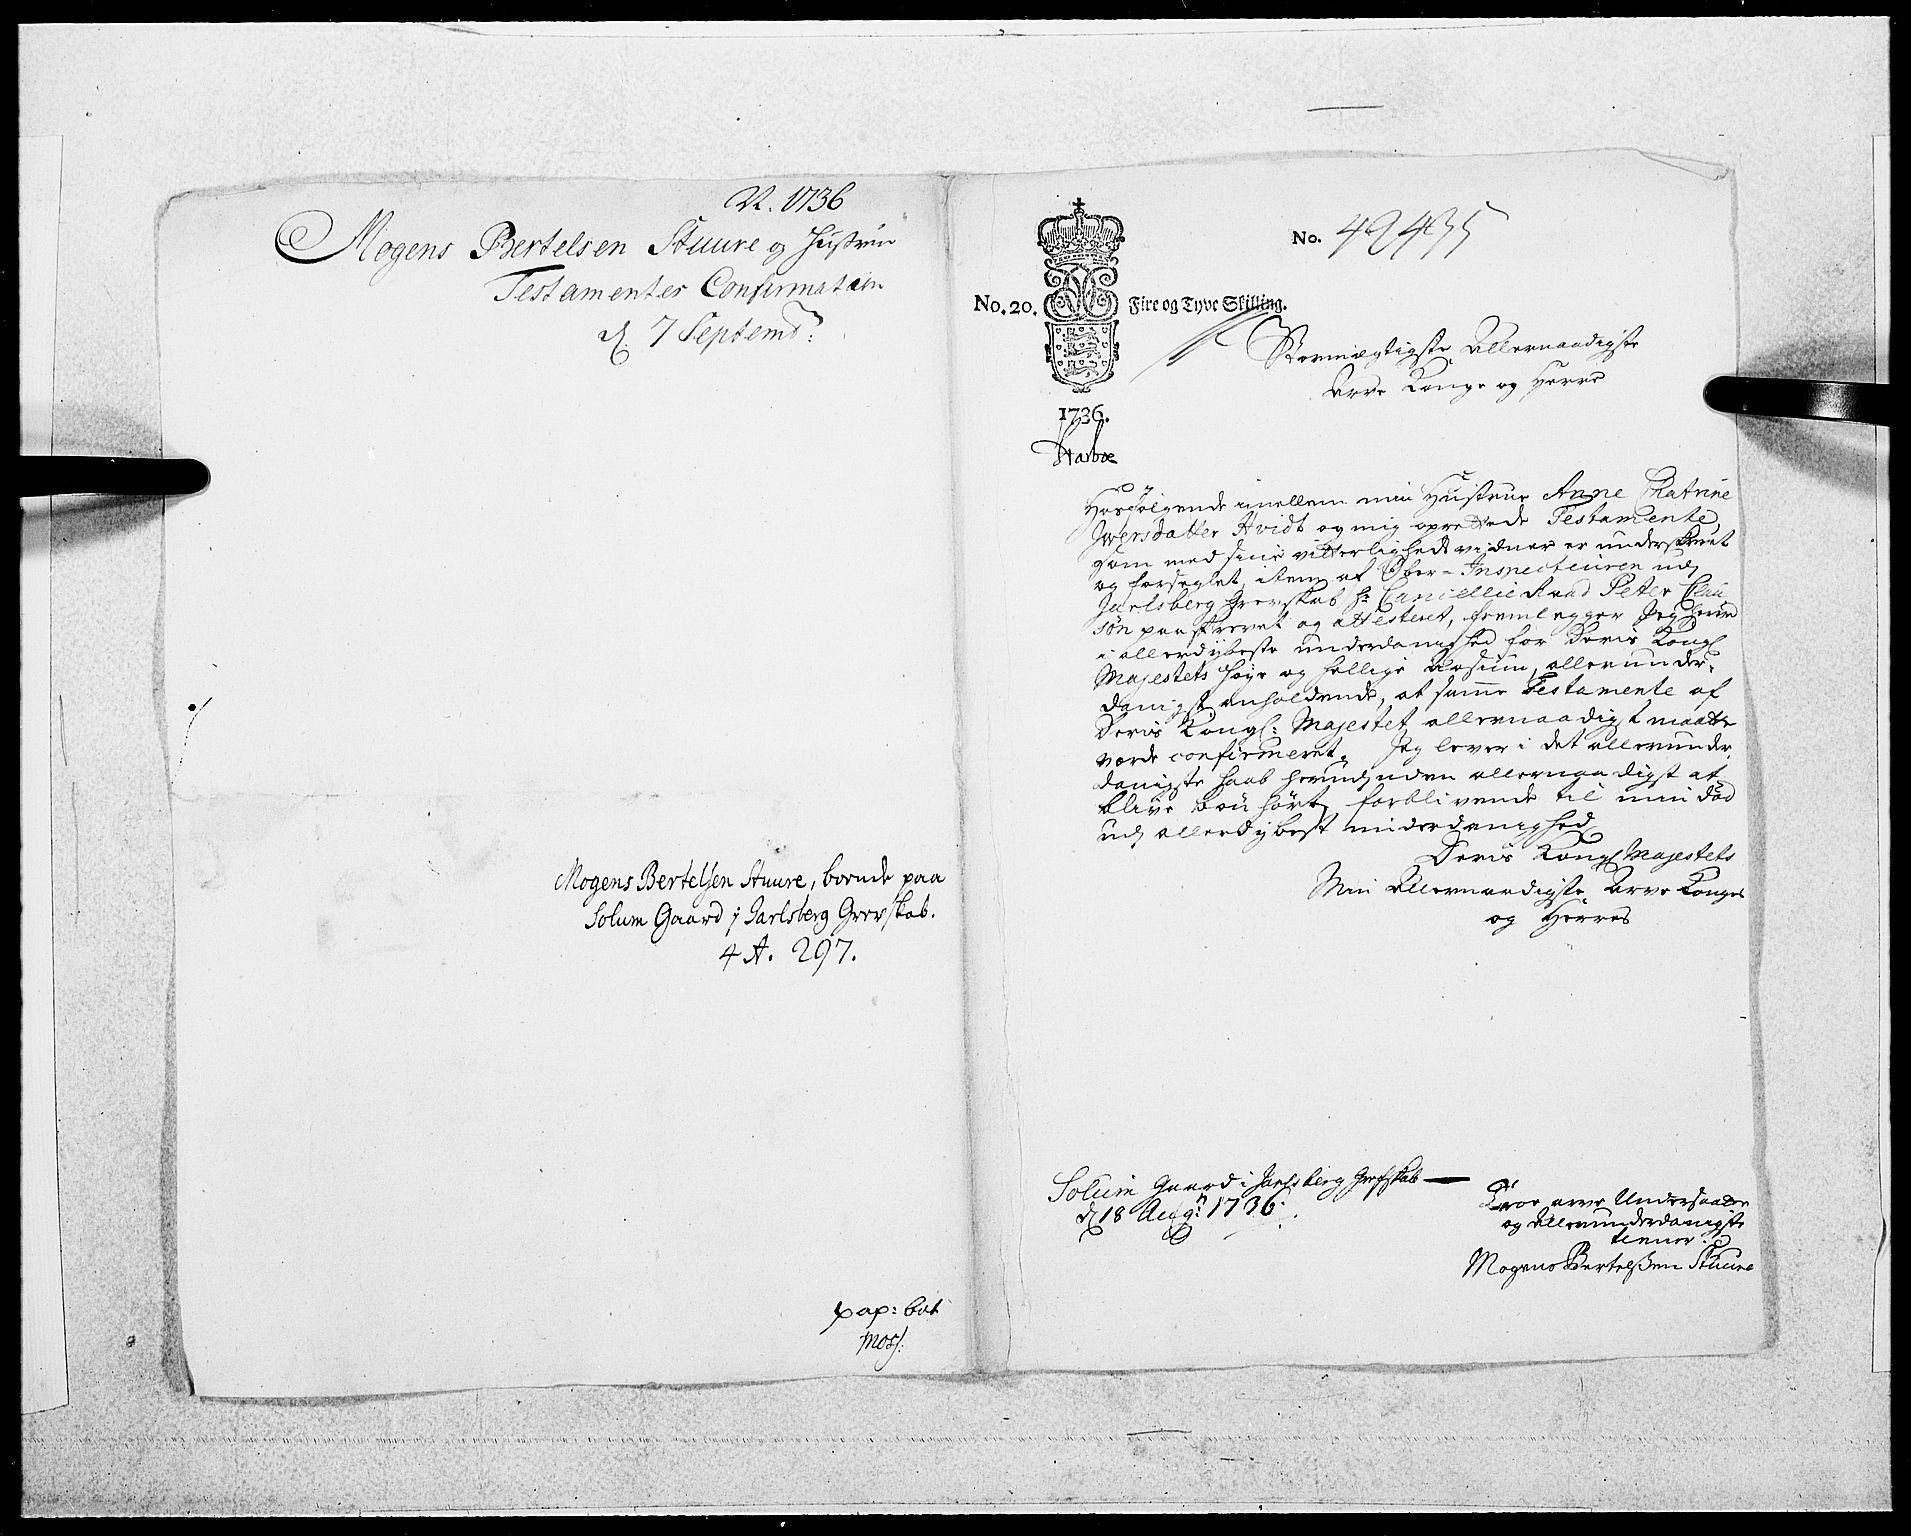 1736
Mogens Bertelsen Stuure og Hustrue
Testamentes Confirmation
d. 7 Septembr:
Mogens Bertelsen Stuure, boende paa
Solum Gaard i Jarlsberg Grevskab.
4 A. 297.
pap: bet
No. 49435
No. 20. Fire og Tyve Skilling.
1736.
Stormægtigste Allernaadigste
Arve Konge og Herre
Hosfølgende imellem min Hustrue Anne Chatrine
Iwersdatter Hvidt og mig oprettede Testamente,
som med sine vitterligheds vidner er underskrevet
og forseglet, item af Ober-Inspecteuren udj
Jarlsberg Grevskab Hr Cancellie Raad Peter Clau
søn paaskrevet og attesteret, fremlegger Jeg herved
i allerdybeste underdanighed for Deris Kongl
Majestets høye og hellige aasiun, allerunder-
danigst anholdende, at samme Testamente af
Deris Kongl: Majestet allernaadigst maatte
vorde confirmeret. Jeg lever i det allerunder
danigste haab herudinden allernaadigst at
blive bønhørt, forblivende til min død
udj allerdybest underdanighed
Deris Kongl Majestets
Min Allernaadigste Arve Konges
og Herres
Solum Gaard i Jarlsberg Grefskab
d 18 Aug: 1736.
Troe arve Undersaatte
og allerunderdanigste
tienner
Mogens Bertelsen Stuure